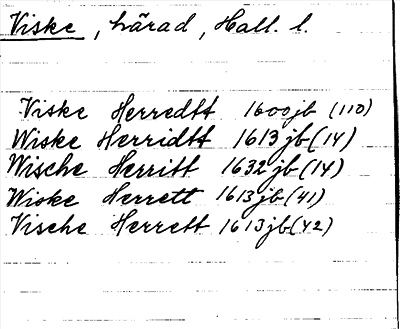 Viske, härad, Hall. l.
Viske Herredtt 1600jb (110)
Wiske Herridtt 1613jb (14)
Wische Herritt 1632jb (14)
Wiske Herrett 1613jb (41)
Vische Herrett 1613jb (42)